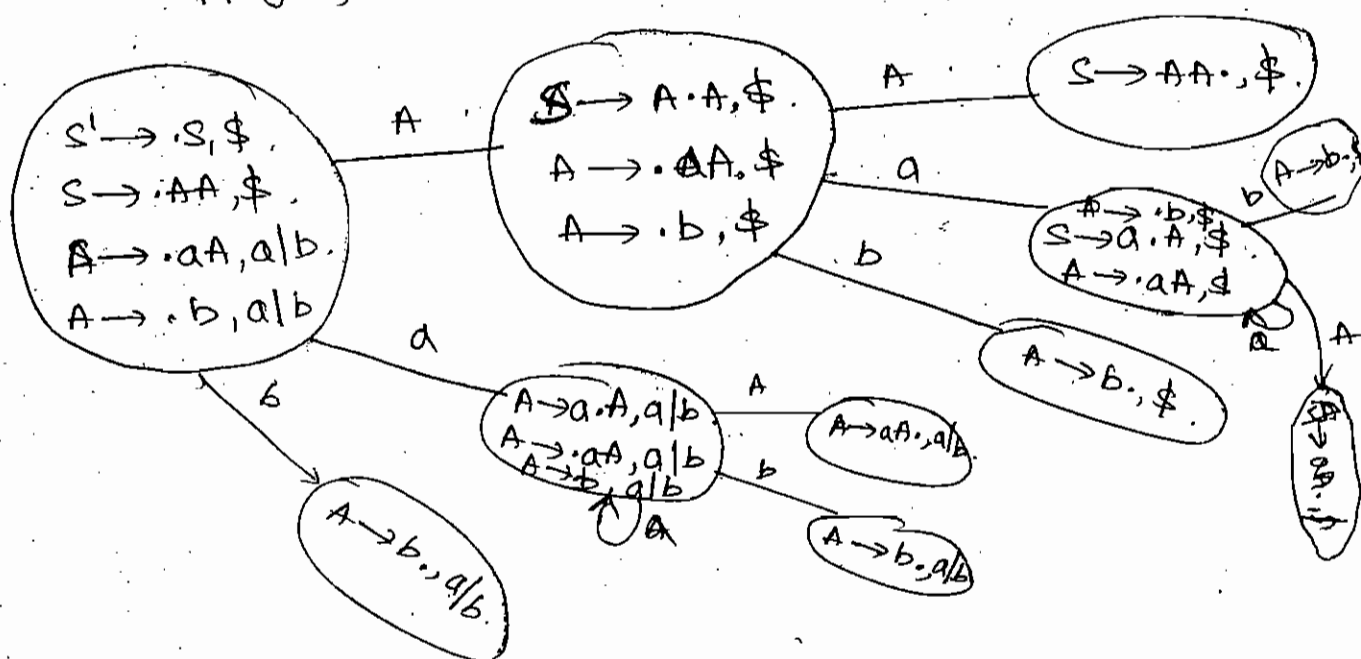 S' → .S, $.
S → .AA, $.
A → .aA, a|b.
A → .b, a|b
A
S → A.A, $.
A → .aA, $
A → .b, $
A
S → AA., $.
a
A → .b, $
S → a.A, $
A → .aA, $
b
A → b., $
a
A
A → aA., $
b
A → b., $.
a
A → a.A, a|b
A → .aA, a|b
A → b, a|b
a
A
A → aA., a/b.
b
A → b., a/b
b
A → b., a/b.